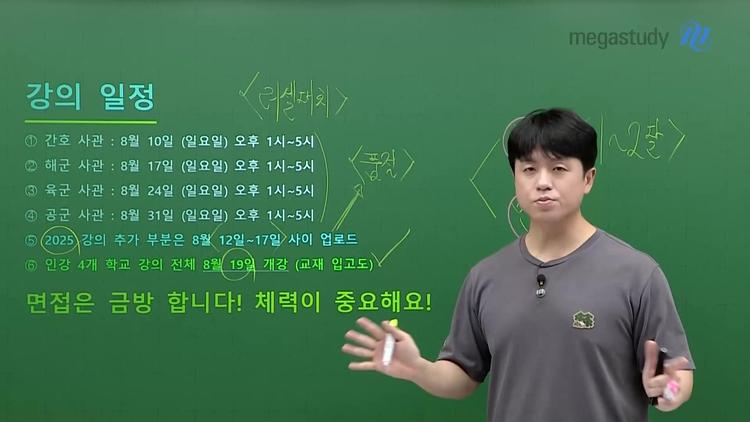 megastudy
강의 일정
<러셀대치>
① 간호 사관 : 8월 10일 (일요일) 오후 1시~5시
② 해군 사관 : 8월 17일 (일요일) 오후 1시~5시
<품절>
~2팔>
③ 육군 사관 : 8월 24일 (일요일) 오후 1시~5시
④ 공군 사관 : 8월 31일 (일요일) 오후 1시~5시
⑤ 2025 강의 추가 부분은 8월 12일~17일 사이 업로드
⑥ 인강 4개 학교 강의 전체 8월 19일 개강 (교재 입고도)
면접은 금방 합니다! 체력이 중요해요!